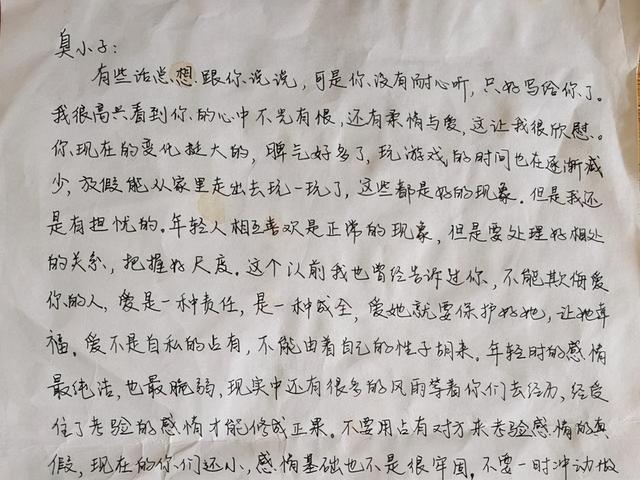 臭小子:
有些话总想跟你说说,可是你没有耐心听,只好写给你了。
我很高兴看到你的心中不光有恨,还有柔情与爱,这让我很欣慰。
你现在的变化挺大的,脾气好多了,玩游戏的时间也在逐渐减
少,放假能从家里走出去玩一玩了,这些都是好的现象。但是我还
是有担忧的。年轻人相互喜欢是正常的现象,但是要处理好相处
的关系,把握好尺度。这个以前我也曾经告诉过你,不能欺侮爱
你的人,爱是一种责任,是一种成全,爱她就要保护好她,让她幸
福。爱不是自私的占有,不能由着自己的性子胡来。年轻时的感情
最纯洁,也最脆弱,现实中还有很多的风雨等着你们去经历,经受
住了考验的感情才能修成正果。不要用占有对方来考验感情的真
假,现在的你们还小,感情基础也不是很牢固。不要一时冲动做